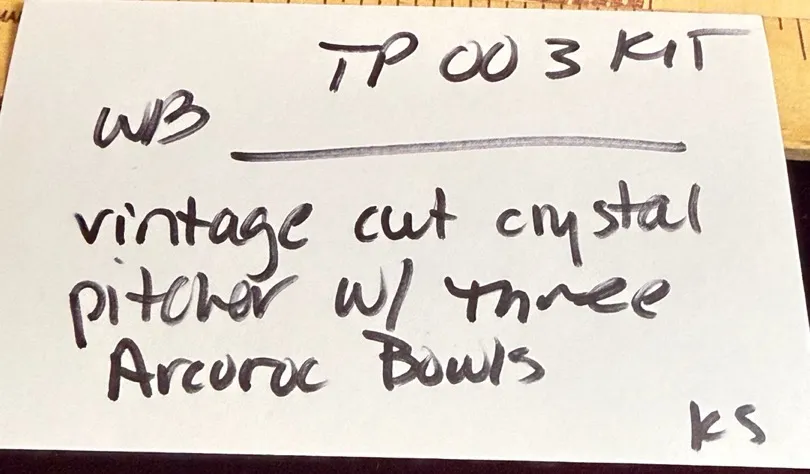 TP 003 KIT
WB
vintage cut crystal
pitcher w/ three
Arcoroc Bowls
KS